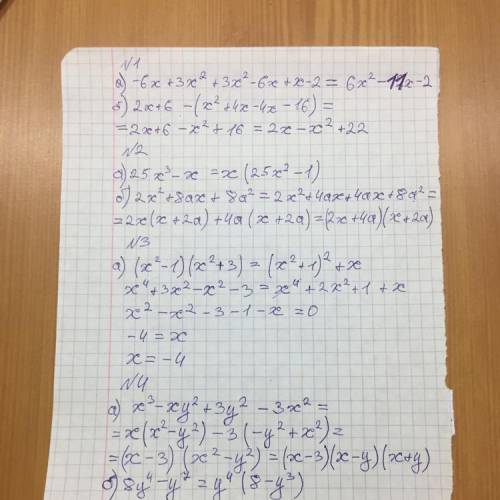 №1
а) -6x+3x²+3x²-6x+x-2 = 6x²-11x-2
б) 2x+6 -(x²+4x-4x-16) =
= 2x+6 -x²+16 = 2x-x²+22
№2
а) 25x³-x = x(25x²-1)
б) 2x²+8ax+8a² = 2x²+4ax+4ax+8a² =
= 2x(x+2a)+4a(x+2a) = (2x+4a)(x+2a)
№3
а) (x²-1)(x²+3) = (x²+1)²+x
x⁴+3x²-x²-3 = x⁴+2x²+1+x
x²-x²-3-1-x = 0
-4 = x
x = -4
№4
а) x³-xy²+3y²-3x² =
= x(x²-y²)-3(-y²+x²) =
= (x-3)(x²-y²) = (x-3)(x-y)(x+y)
б) 8y⁴-y⁷ = y⁴(8-y³)